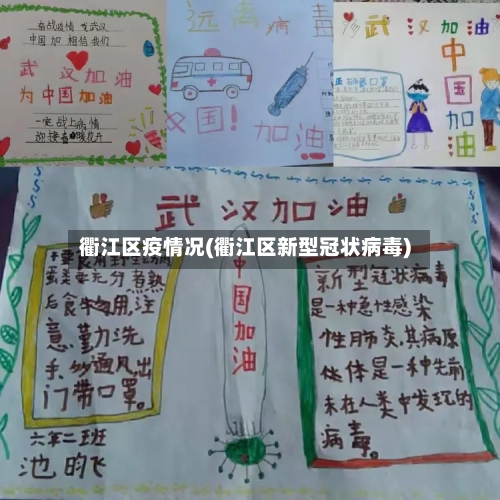 奋战疫情 爱武汉
中国加 相信我们
武汉加油
为中国加油
一定战上病情
迎接春暖花开
远离病毒
国！加油
武汉加油
中国加油
武汉加油
衢江区疫情况(衢江区新型冠状病毒)
蛋类要充分煮熟
后食物用,注
意勤洗
手,妙通风,出
门带口罩。
六年二班
池昀飞
中国加油
新型冠状病毒
是一种急性感染
性肺炎,其病原
体是一种先前
未在人类中发现的
病毒。